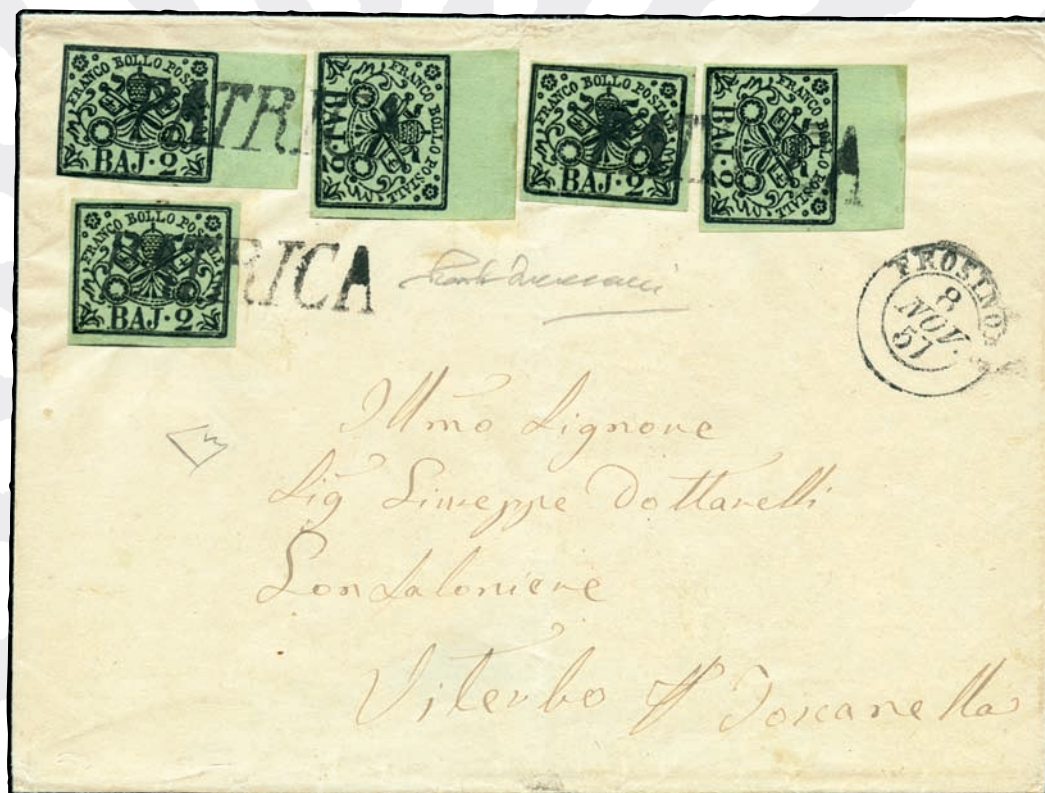 FRANCO BOLLO POSTALE
BAJ·2
FRANCO BOLLO POSTALE
BAJ·2
FRANCO BOLLO POSTALE
BAJ·2
FRANCO BOLLO POSTALE
BAJ·2
FRANCO BOLLO POSTALE
BAJ·2
PATRICA
FROSINO
8
NOV.
57
Illmo Signore
Sig Giuseppe Dottarelli
Gonfaloniere
Viterbo Toscanella